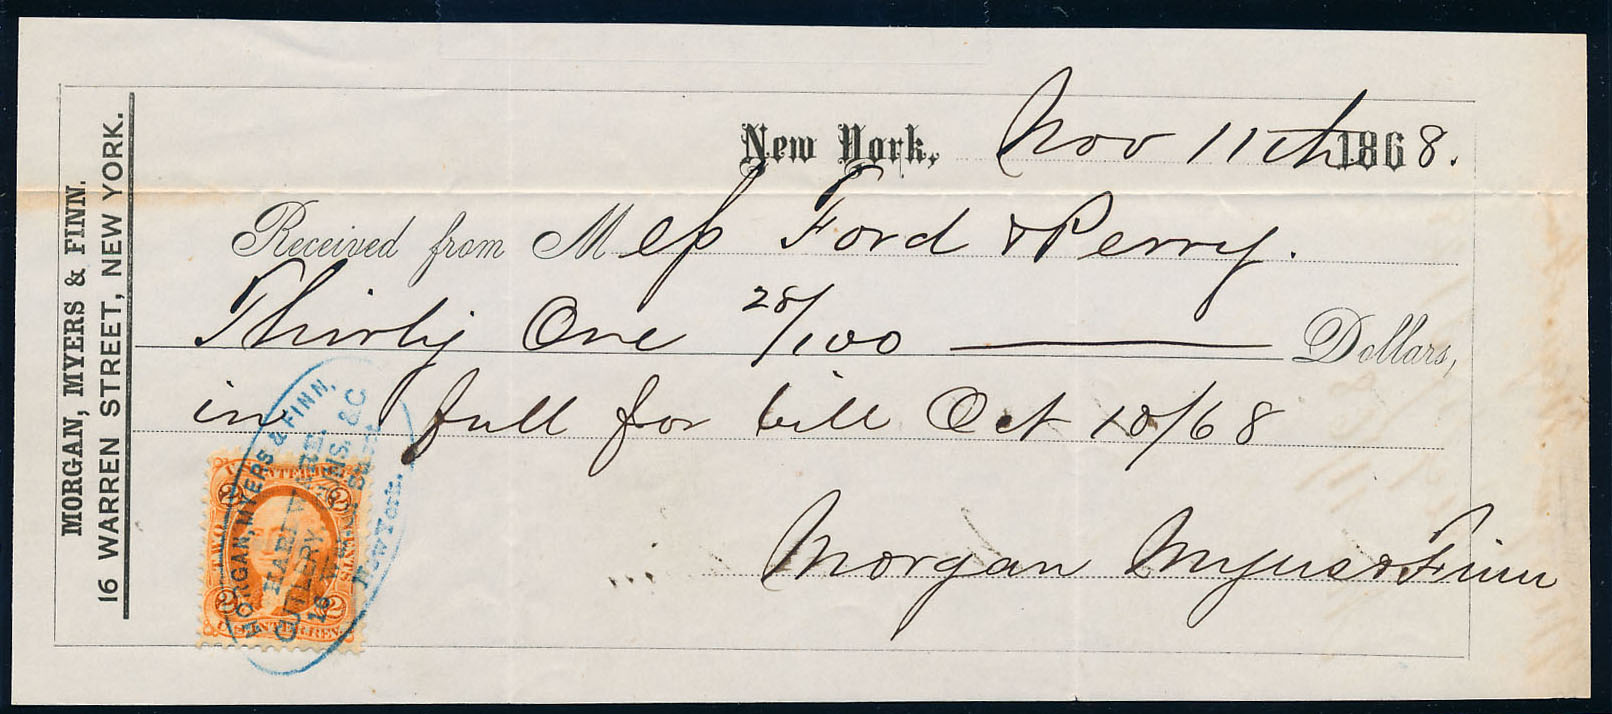 MORGAN, MYERS & FINN.
16 WARREN STREET, NEW YORK.
New York, Nov 11th 1868.
Received from Mess Ford & Perry.
Thirty One 28/100 Dollars,
in full for bill Oct 10/68
Morgan Myers & Finn
MORGAN, MYERS & FINN,
HARDWARE
CUTLERY, GUNS, &C
16 Warren Street
New York.
U.S. INTER. REV.
2 2
TWO CENTS
2 2
U.S. INTER. REV.